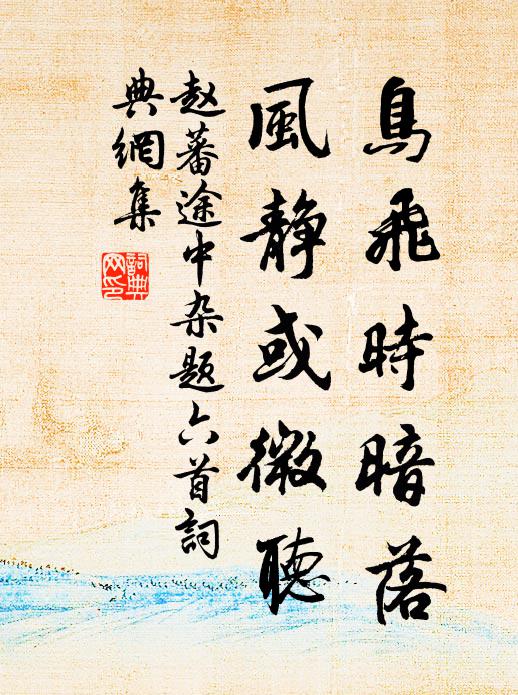 鳥飛時暗落
風静或微聽
赵蕃途中杂题六首詞
典網集
詞典
网印